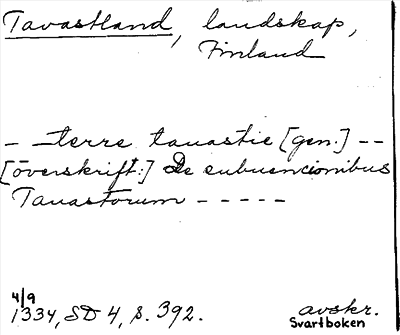 Tavastland, landskap,
Finland
- - terre tauastie [gen.] - -
[överskrift:] De eubuencionibus
Tauastorum - - - - -
4/9
1334, SD 4, s. 392.
avskr.
Svartboken